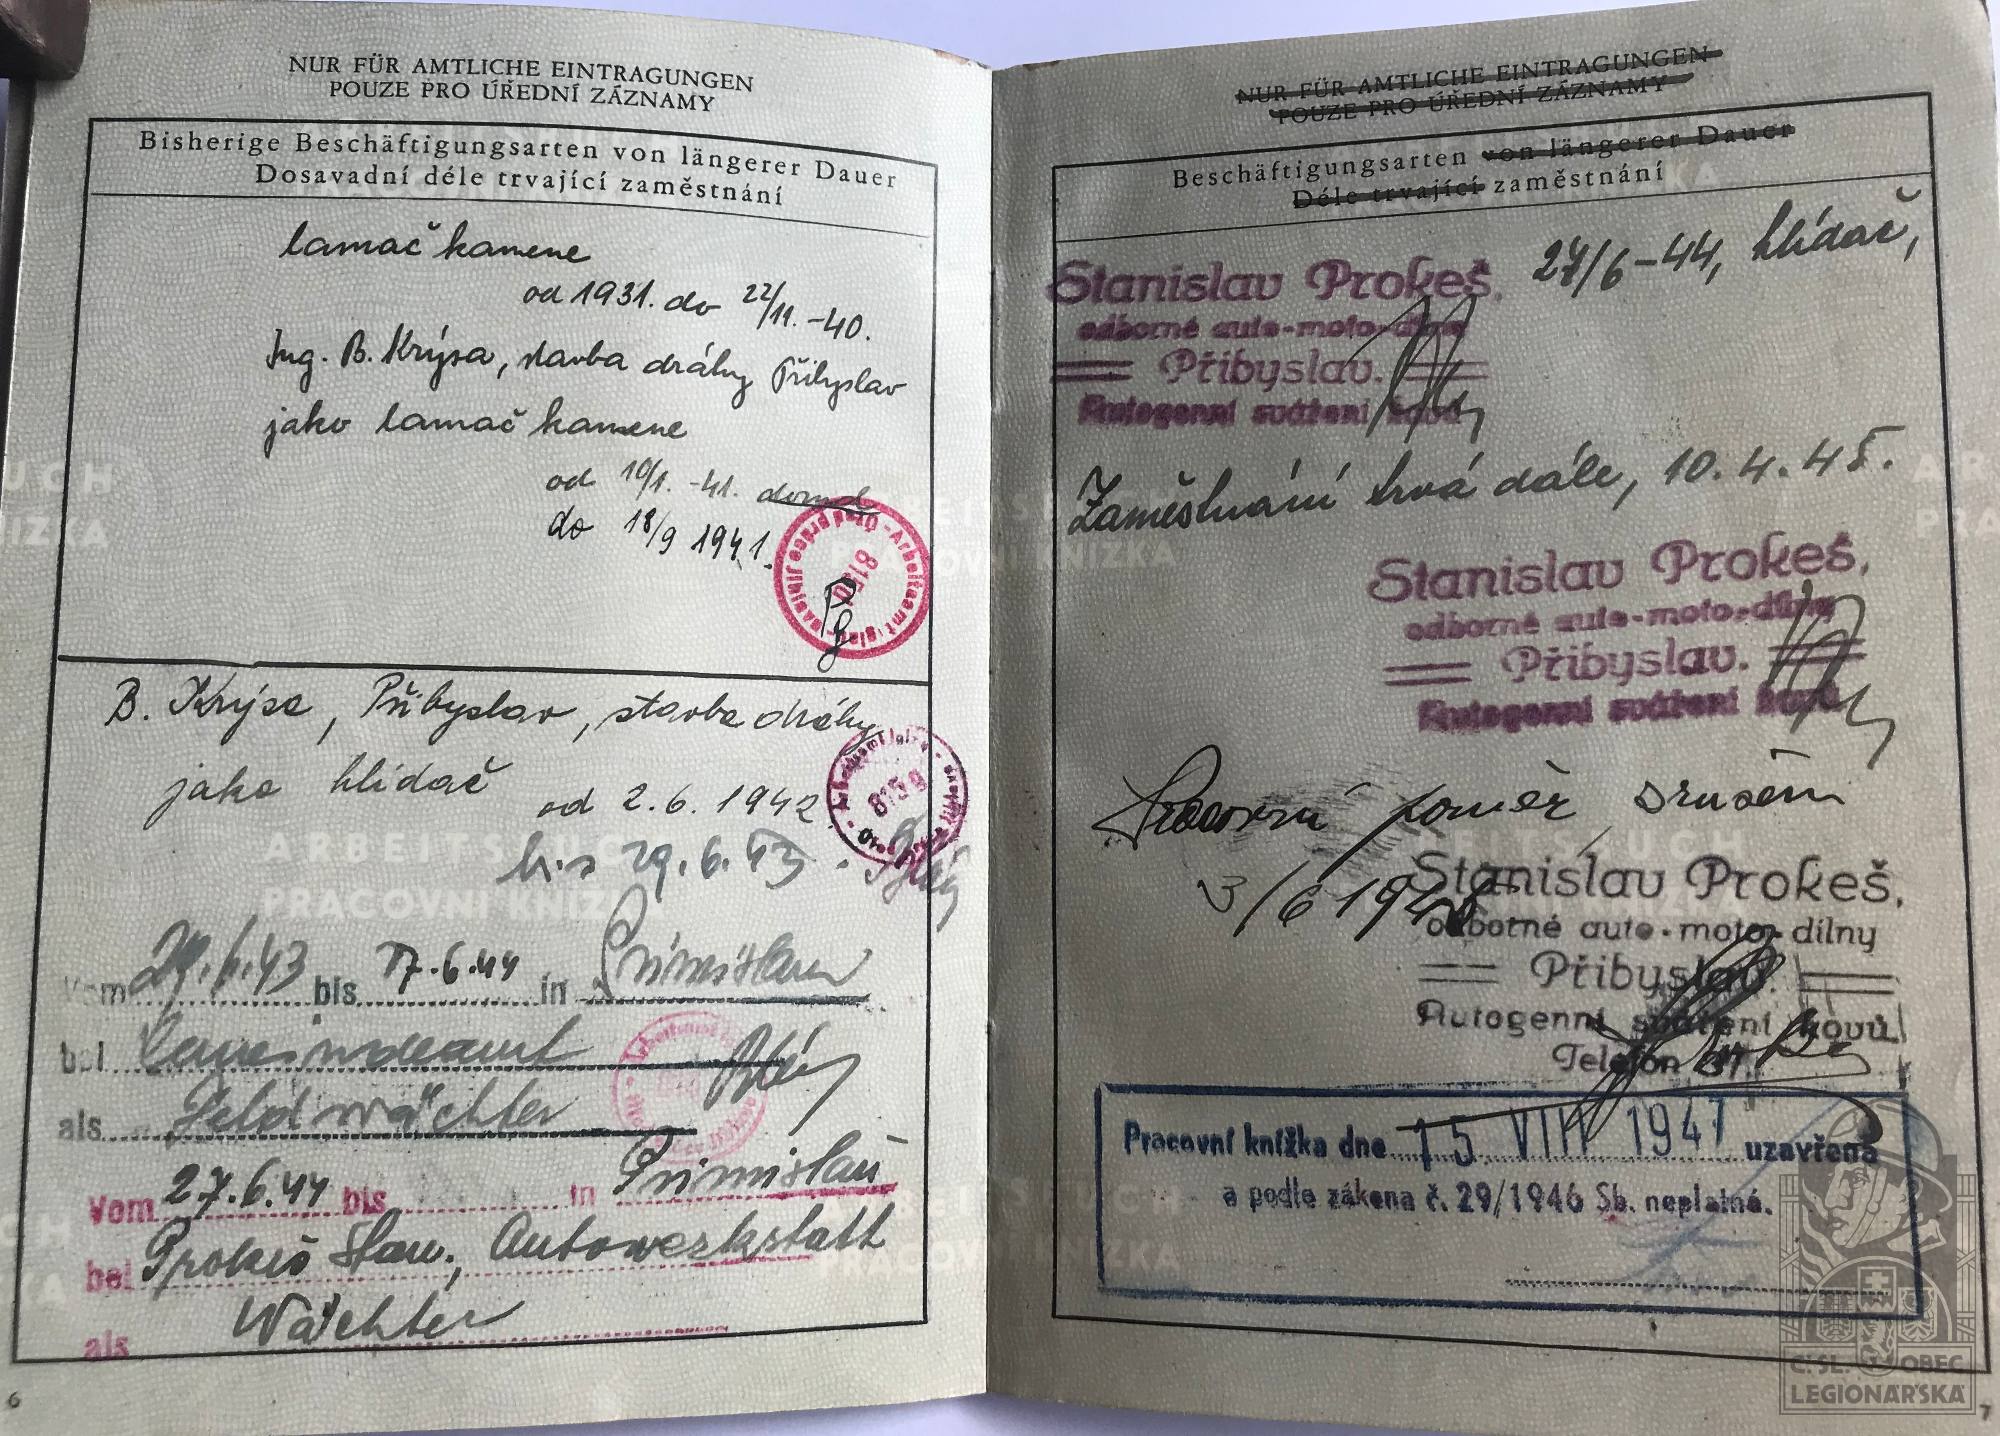 NUR FÜR AMTLICHE EINTRAGUNGEN
POUZE PRO ÚŘEDNÍ ZÁZNAMY
Bisherige Beschäftigungsarten von längerer Dauer
Dosavadní déle trvající zaměstnání
lamač kamene
od 1931. do 22/11.-40.
Ing. B. Krýsa, stavba dráhy Přibyslav
jako lamač kamene
od 10/1. -41. dosud
do 18/9 1941.
B. Krýsa, Přibyslav, stavba dráhy
jako hlídač od 2.6.1942
bis 29.6.43.
Vom 29.6.43 bis 17.6.44 in Primislau
bei Gemeindeamt
als Feldwächter
Vom 27.6.44 bis in Primislau
bei Prokeš Stan., Autowerkstatt
als Wächter
6
NUR FÜR AMTLICHE EINTRAGUNGEN
POUZE PRO ÚŘEDNÍ ZÁZNAMY
Beschäftigungsarten von längerer Dauer
Déle trvající zaměstnání
27/6-44, hlídač,
Stanislav Prokeš,
odborné auto-moto-dílny
Přibyslav.
Autogenní sváření kovů
Zaměstnání trvá dále, 10.4.45.
Stanislav Prokeš,
odborné auto-moto-dílny
Přibyslav.
Autogenní sváření kovů
Pracovní poměr zrušen
3/6 194
Stanislav Prokeš,
odborné auto-moto-dílny
Přibyslav.
Autogenní sváření kovů
Telefon
Pracovní knížka dne 15 VIII 1947 uzavřena
a podle zákena č. 29/1946 Sb. neplatná.
Č.SL. OBEC
LEGIONÁŘSKÁ
7